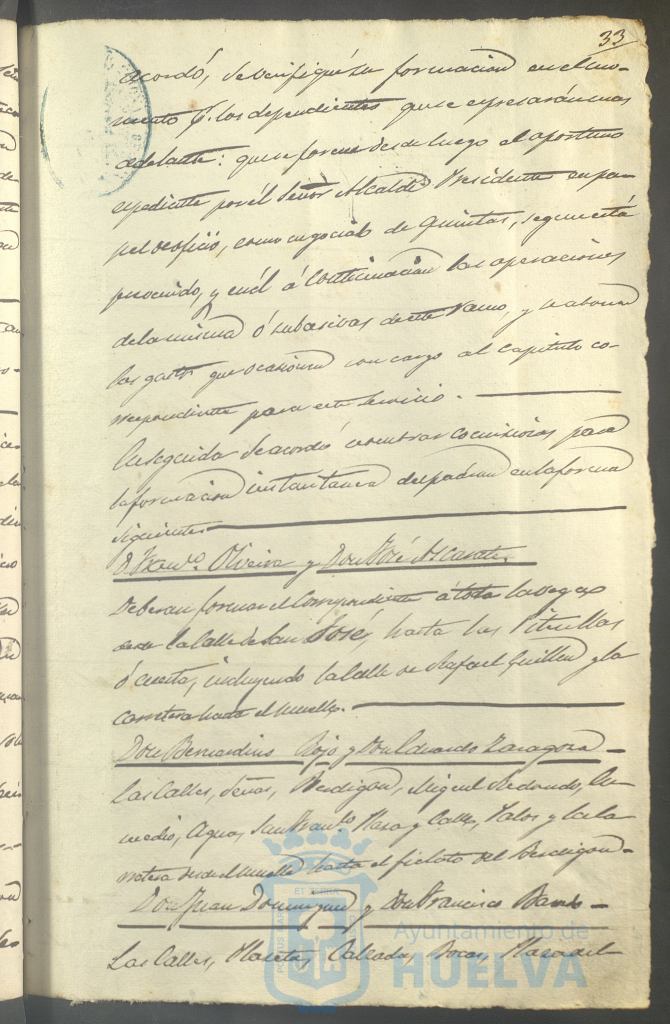 33
acordó, se verifique su formacion en el mo-
mento pr. los dependientes que se espresarán mas
adelante: que se forme desde luego el oportuno
espediente por el Señor Alcalde Presidente en pa-
pel de oficio, como negociado de Quintas, segun está
prevenido, y en él á continuacion las operaciones
de la misma ó subasivas de este ramo, y se abonen
los gastos que ocasionen con cargo al capitulo co-
rrespondiente para este servicio.
Enseguida se acordó nombrar comisiones para
la formacion instantanea del padron en la forma
siguiente
D. Oliveira y Don José Ascarate
Deberan formar el correspondiente á toda la vega
desde la Calle de San José, hasta las
ó cuesta, incluyendo la Calle de Rafael Guillen y la
carretera hasta el muelle.
Don Bernardino Rojo y Don Eduardo Zaragoza
Las Calles, Señas, Berdigon, Miguel Redondo, En-
medio, Aguas, San Franco. Plaza y Calle, Palos y la ca-
rretera desde el muelle hasta el fielato del Berdigon
Don Juan Dominguez y Don Francisco
Las Calles, Placeta, Calzada, Bocas, Plaza del
Ayuntamiento de
HUELVA